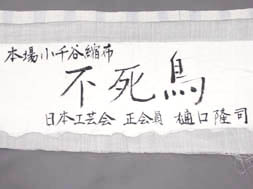 本場小千谷縮布
不死鳥
日本工芸会 正会員 樋口隆司